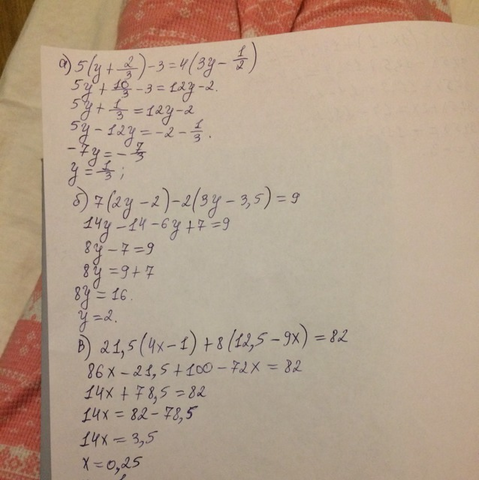 а) 5(y + 2/3) - 3 = 4(3y - 1/2)
5y + 10/3 - 3 = 12y - 2.
5y + 1/3 = 12y - 2
5y - 12y = -2 - 1/3.
-7y = - 7/3
y = 1/3;
б) 7(2y - 2) - 2(3y - 3,5) = 9
14y - 14 - 6y + 7 = 9
8y - 7 = 9
8y = 9 + 7
8y = 16.
y = 2.
в) 21,5(4x - 1) + 8(12,5 - 9x) = 82
86x - 21,5 + 100 - 72x = 82
14x + 78,5 = 82
14x = 82 - 78,5
14x = 3,5
x = 0,25